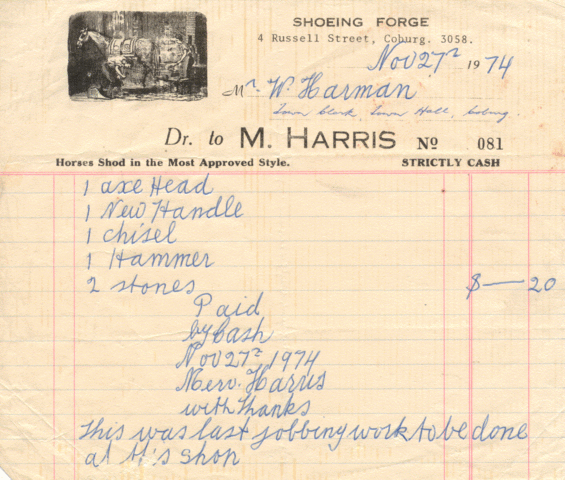 SHOEING FORGE
4 Russell Street, Coburg. 3058.
Nov 27ᵃ 1974
Mr W. Harman
Town Clerk, Town Hall, Coburg
Dr. to M. HARRIS No 081
Horses Shod in the Most Approved Style. STRICTLY CASH
1 axe Head
1 New Handle
1 chisel
1 Hammer
2 stones $ — 20
Paid
by Cash
Nov 27ᵃ 1974
Merv. Harris
with Thanks
This was last jobbing work to be done
at H's shop